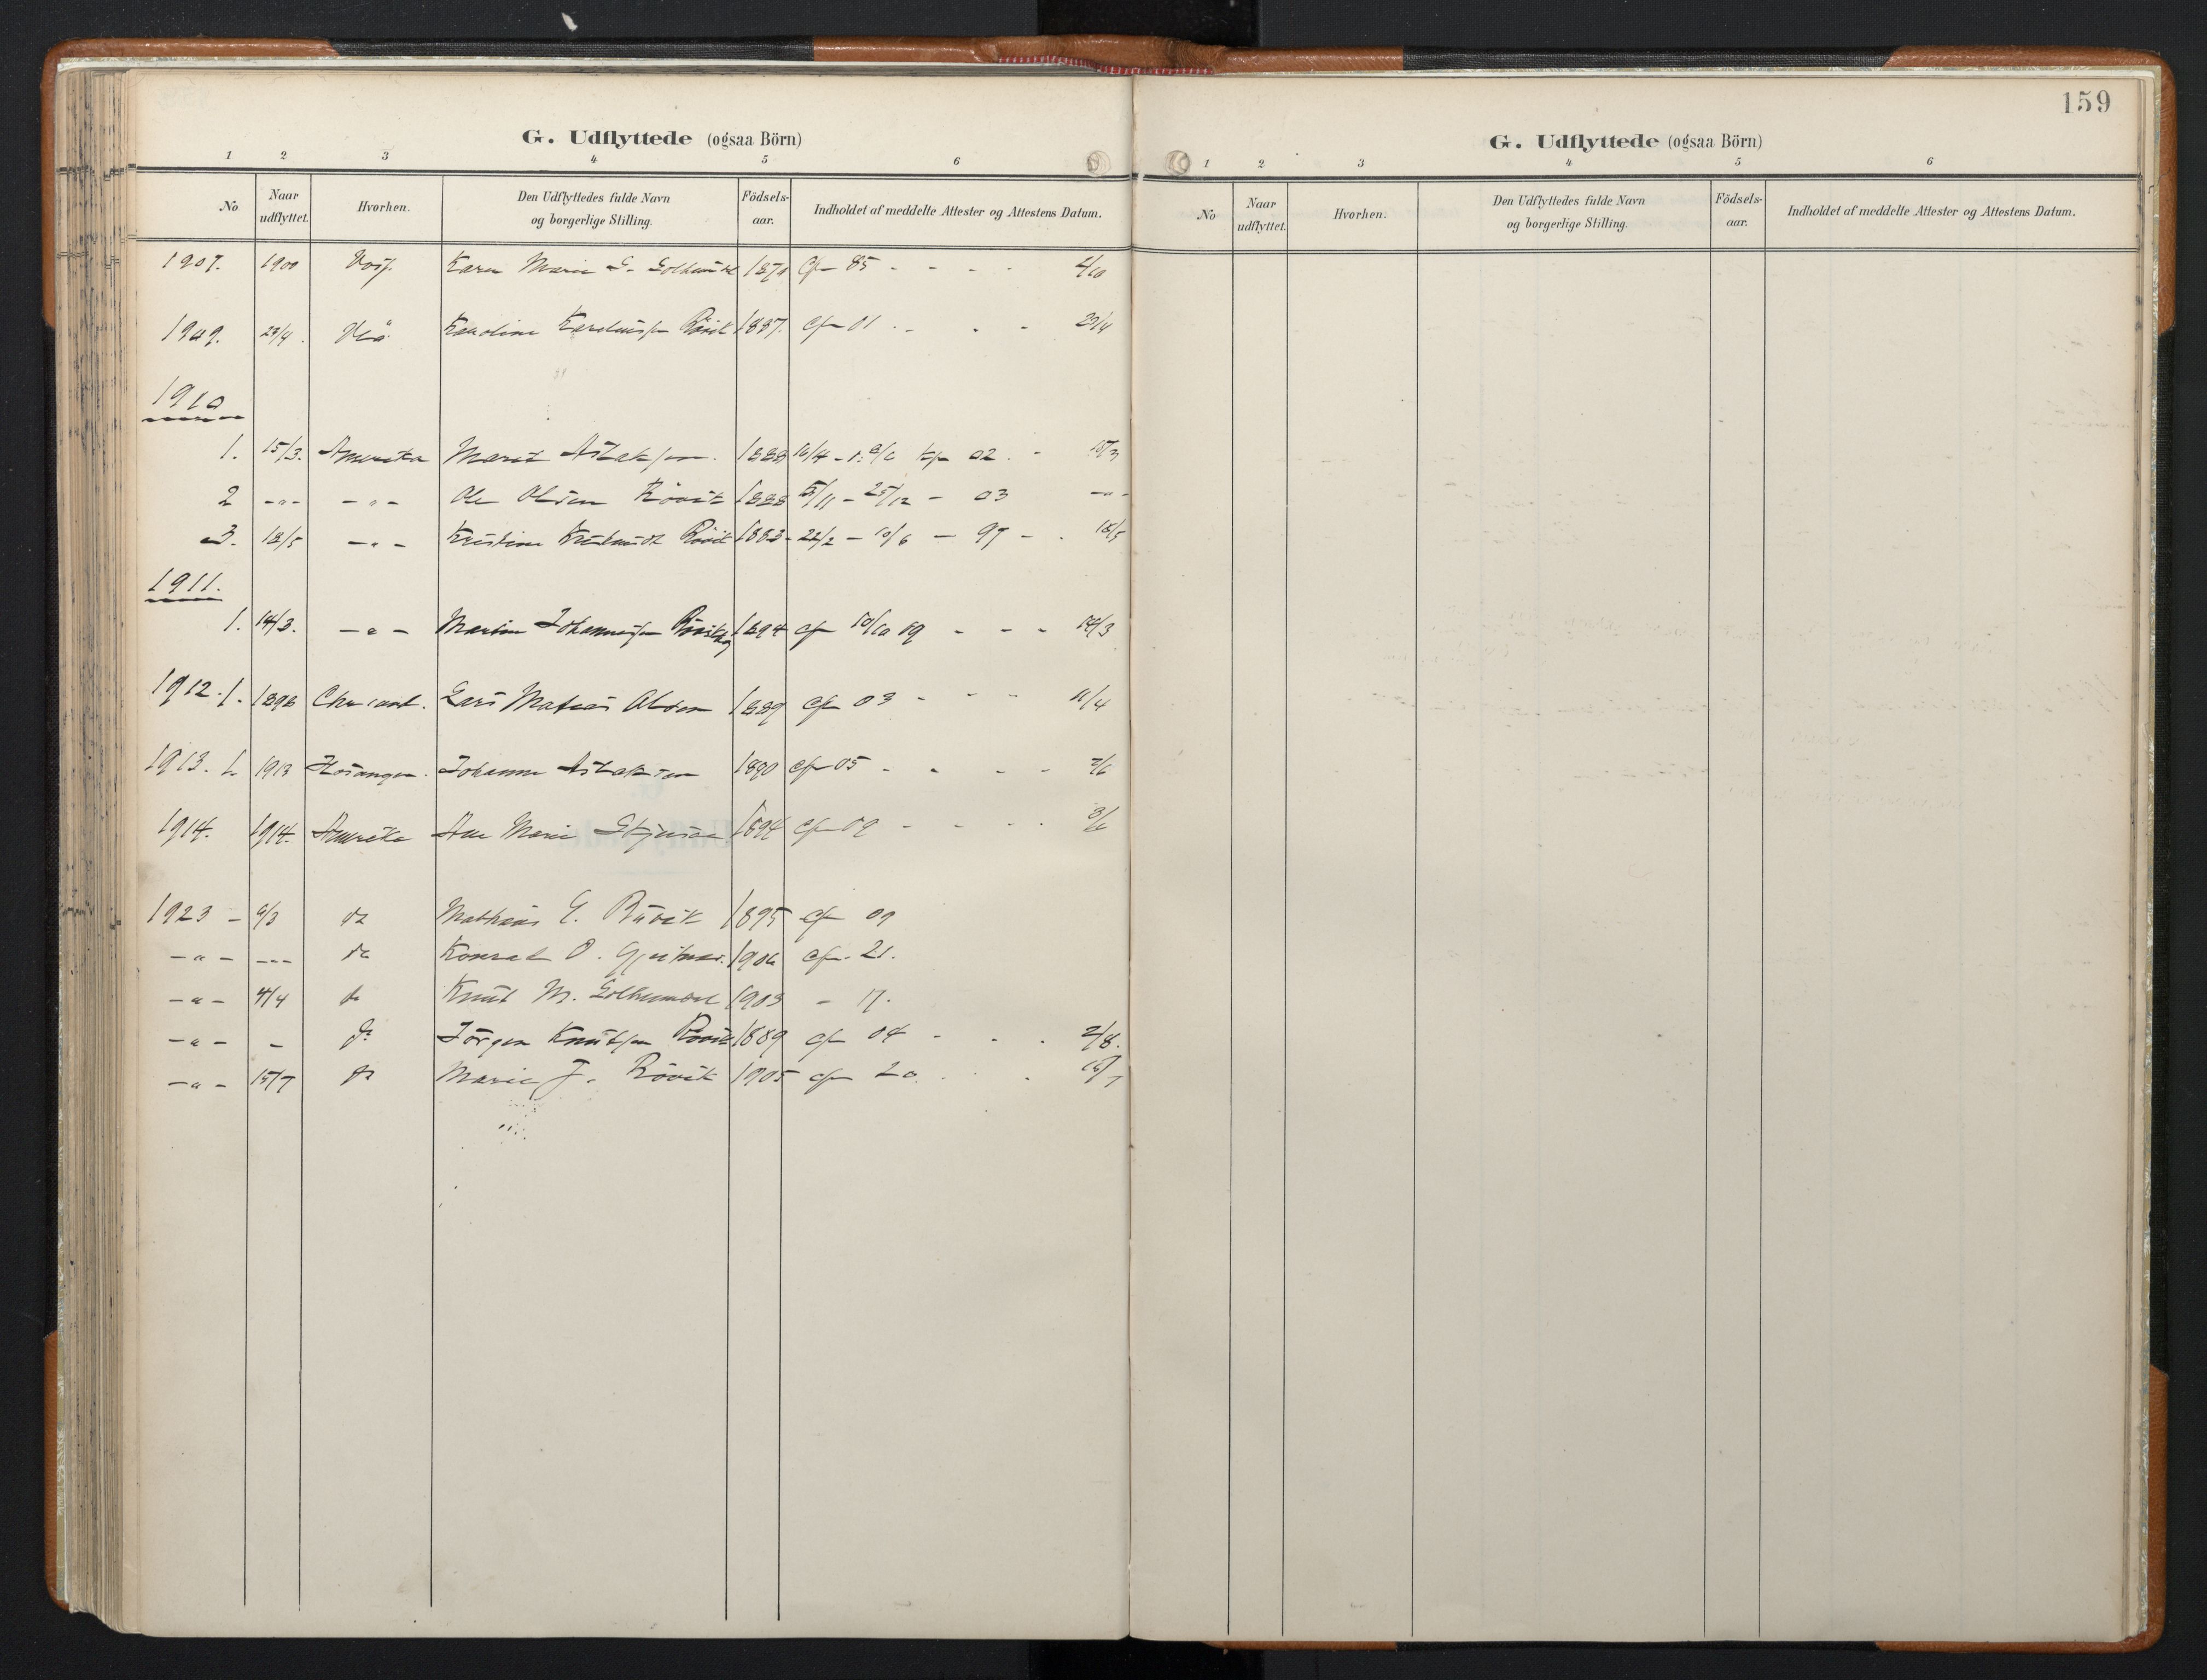 159
G. Udflyttede (ogsaa Börn)
1 2 3 4 5 6
No Naar udflyttet. Hvorhen. Den Udflyttedes fulde Navn og borgerlige Stilling. Födsels-aar. Indholdet af meddelte Attester og Attestens Datum.
1907. 1900 Karen Marie 1870 cf 85 - - - -
1909. 23/4 Karoline Rövik 1887. cf 01 - - - 23/4
1910
1. 15/3. Amerika Marit Aslaksen. 1888 kf 02. - 15/3
2 -"- -"- Ole Olsen Rövik 1888 - 25/12 - 03 -"-
3. 18/5 -"- Kristine Rövik 1883 - 22/2 - 10/6 - 97 - . 18/5
1911.
1. 14/3. -"- Martin Johannessen 1894 cf 10/10 09 - - - 14/3
1912. 1. 1898 Lars Matias Olsen 1889 cf 03 - - - 11/4
1913. 1. 1913 Hosanger. Johanne Aslaksen 1890 cf 05 - - - -
1914. 1914. Amerika Ane Marie 1894 cf 09 - - - -
1923 - do Mathias E. Rövik 1895 cf 09
-"- -"- do Konrad O. 1906 cf. 21.
-"- 4/4 do Knut M. 1903 - 17.
-"- - do Jörgen Knutsen Rövik 1889 cf 04 - - - 2/8.
-"- 15/7 do Marie J. Rövik 1905 cf 20. . .
G. Udflyttede (ogsaa Börn)
1 2 3 4 5 6
No Naar udflyttet. Hvorhen. Den Udflyttedes fulde Navn og borgerlige Stilling. Födsels-aar. Indholdet af meddelte Attester og Attestens Datum.